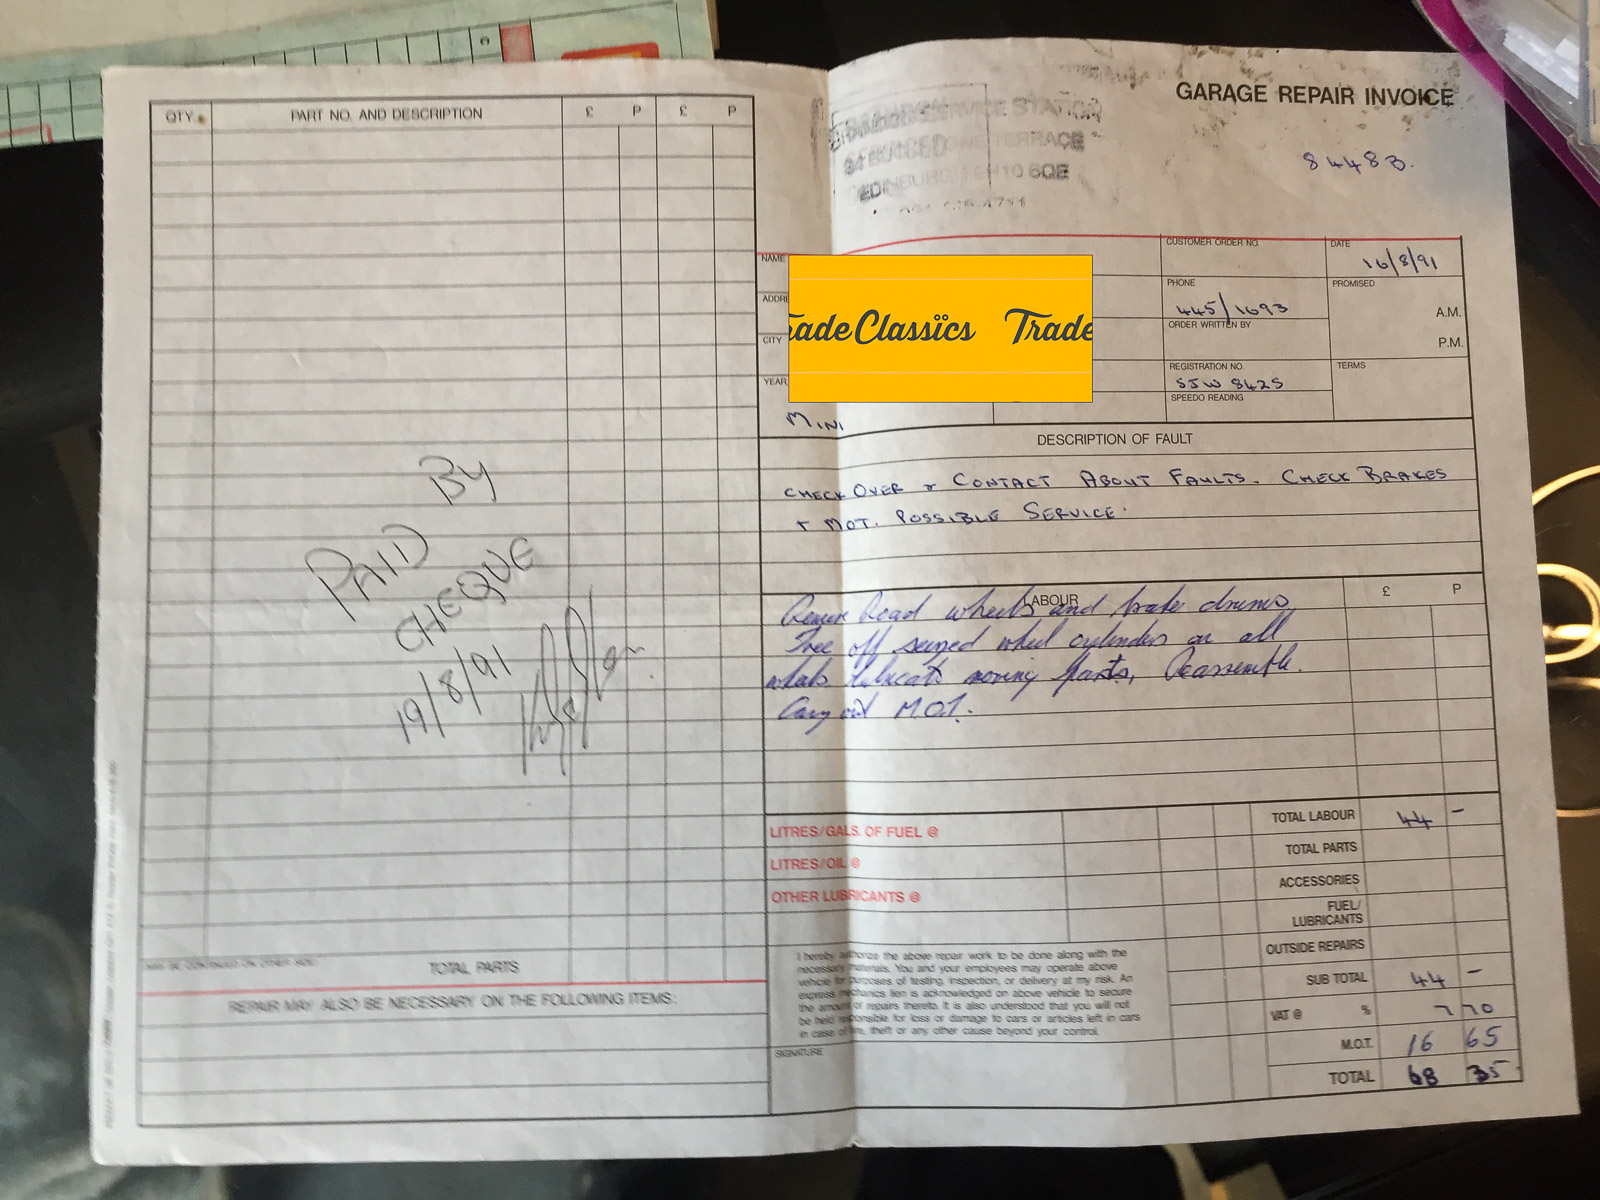 QTY.
PART NO. AND DESCRIPTION
£ P £ P
PAID BY
CHEQUE
19/8/91
TOTAL PARTS
REPAIR MAY ALSO BE NECESSARY ON THE FOLLOWING ITEMS:
SERVICE STATION
TERRACE
EDINBURGH EH10 6QE
GARAGE REPAIR INVOICE
84483.
NAME
CUSTOMER ORDER NO.
DATE
16/8/91
ADDR
PHONE
445/1693
PROMISED
A.M.
P.M.
CITY
ORDER WRITTEN BY
adeClassics Trade
YEAR
REGISTRATION NO.
SJW 842S
TERMS
SPEEDO READING
MINI
DESCRIPTION OF FAULT
CHECK OVER + CONTACT ABOUT FAULTS. CHECK BRAKES
+ MOT. POSSIBLE SERVICE.
LABOUR
£ P
Remove Road wheels and brake drums,
Free off seized wheel cylinders on all
wheels lubricate moving parts, Reassemble.
Carry out M.O.T.
LITRES/GALS. OF FUEL @
LITRES/OIL @
OTHER LUBRICANTS @
TOTAL LABOUR 44 -
TOTAL PARTS
ACCESSORIES
FUEL/
LUBRICANTS
OUTSIDE REPAIRS
SUB TOTAL 44 -
VAT @ % 7 70
M.O.T. 16 65
TOTAL 68 35
I hereby authorize the above repair work to be done along with the
necessary materials. You and your employees may operate above
vehicle for purposes of testing, inspection, or delivery at my risk. An
express mechanics lien is acknowledged on above vehicle to secure
the amount or repairs thereto. It is also understood that you will not
be held responsible for loss or damage to cars or articles left in cars
in case of fire, theft or any other cause beyond your control.
SIGNATURE